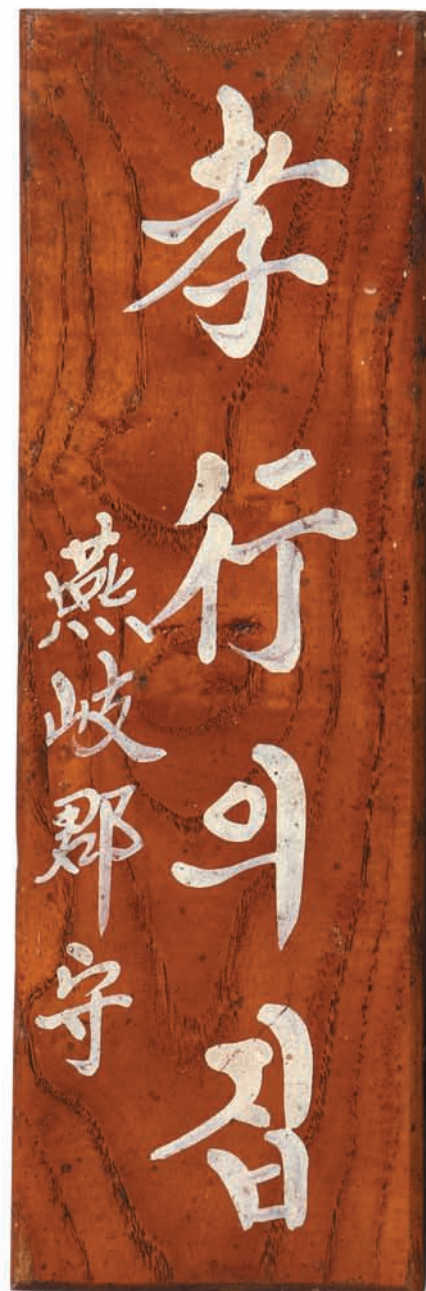 孝行의집
燕岐郡守